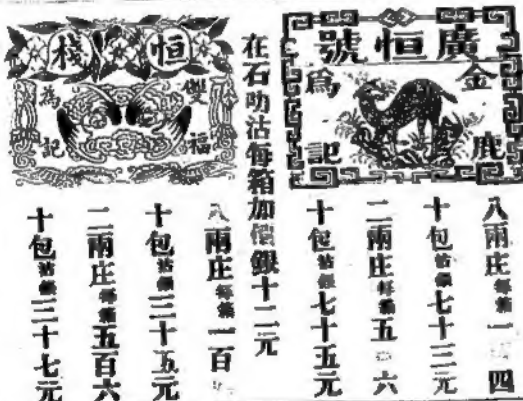 廣恒號
金鹿
爲記
八兩庄每箱一四
十包沽銀七十三元
二兩庄每箱五六
十包沽銀七十五元
在石叻沽每箱加價銀十二元
恒棧
雙福
為記
八兩庄每箱一百
十包沽銀三十五元
二兩庄每箱五百六
十包沽銀三十七元